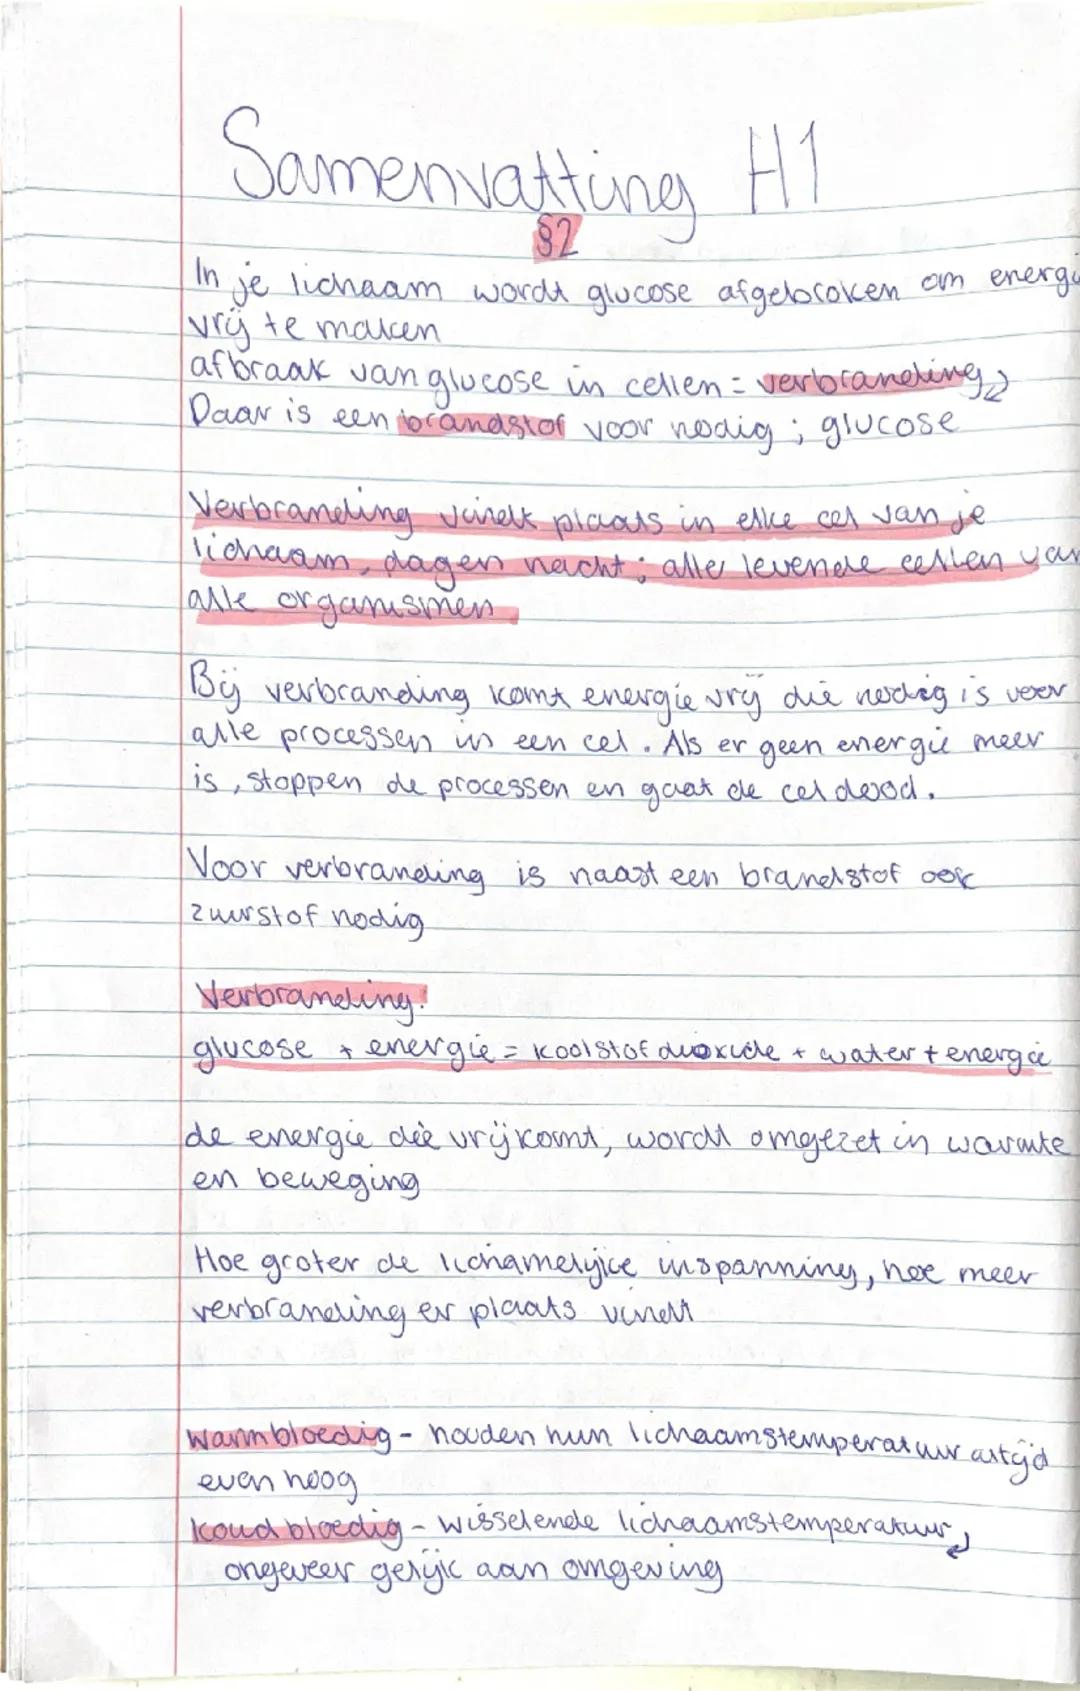 Samenvatting H1
§2
In je lichaam wordt glucose afgebroken om energie
vrij te maken
afbraak van glucose in cellen = verbranding
Daar is een brandstof voor nodig ; glucose
Verbranding vindt plaats in elke cel van je
lichaam, dag en nacht ; alle levende cellen van
alle organismen
Bij verbranding komt energie vrij die nodig is voor
alle processen in een cel. Als er geen energie meer
is, stoppen de processen en gaat de cel dood.
Voor verbranding is naast een brandstof ook
zuurstof nodig
Verbranding:
glucose + energie = koolstofdioxide + water + energie
de energie die vrijkomt, wordt omgezet in warmte
en beweging
Hoe groter de lichamelijke inspanning, hoe meer
verbranding er plaats vindt
warmbloedig - houden hun lichaamstemperatuur altijd
even hoog
koudbloedig - wisselende lichaamstemperatuur,
ongeveer gelijk aan omgeving